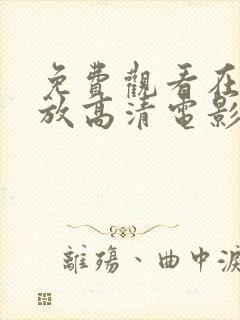 免費觀看在
放高清電影
離殤、曲中淚